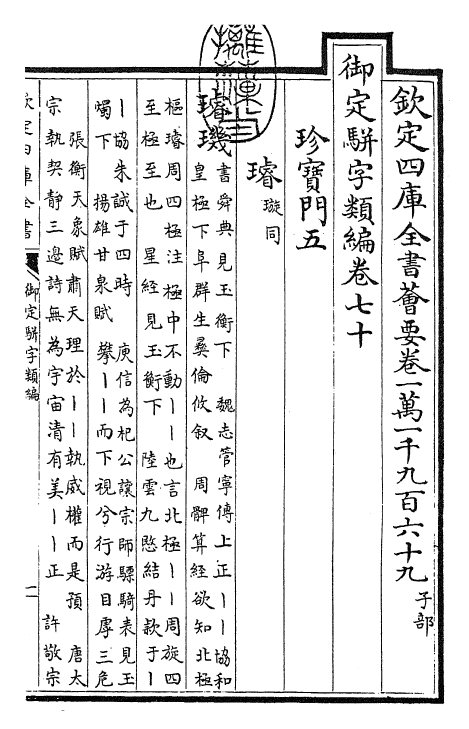 欽定四庫全書薈要卷一萬一千九百六十九 子部
御定駢字類編卷七十
珍寶門五
璿 璇同
璿璣 書舜典見玉衡下 魏志管寧傳上正丨丨協和
皇極下阜羣生彞倫攸叙 周髀算經欲知北極
樞璿周四極注極中不動丨丨也言北極丨丨周旋四
至極至也 星經見玉衡下 陸雲九愍結丹款于丨
丨協朱誠于四時 庾信為杞公讓宗師驃騎表見玉
燭下 揚雄甘泉賦 攀丨丨而下視兮行游目虖三危
張衡天象賦肅天理於丨丨執威權而是預 唐太
宗執契靜三邊詩無為宇宙清有美丨丨正 許敬宗
欽定四庫全書
御定駢字類編
一